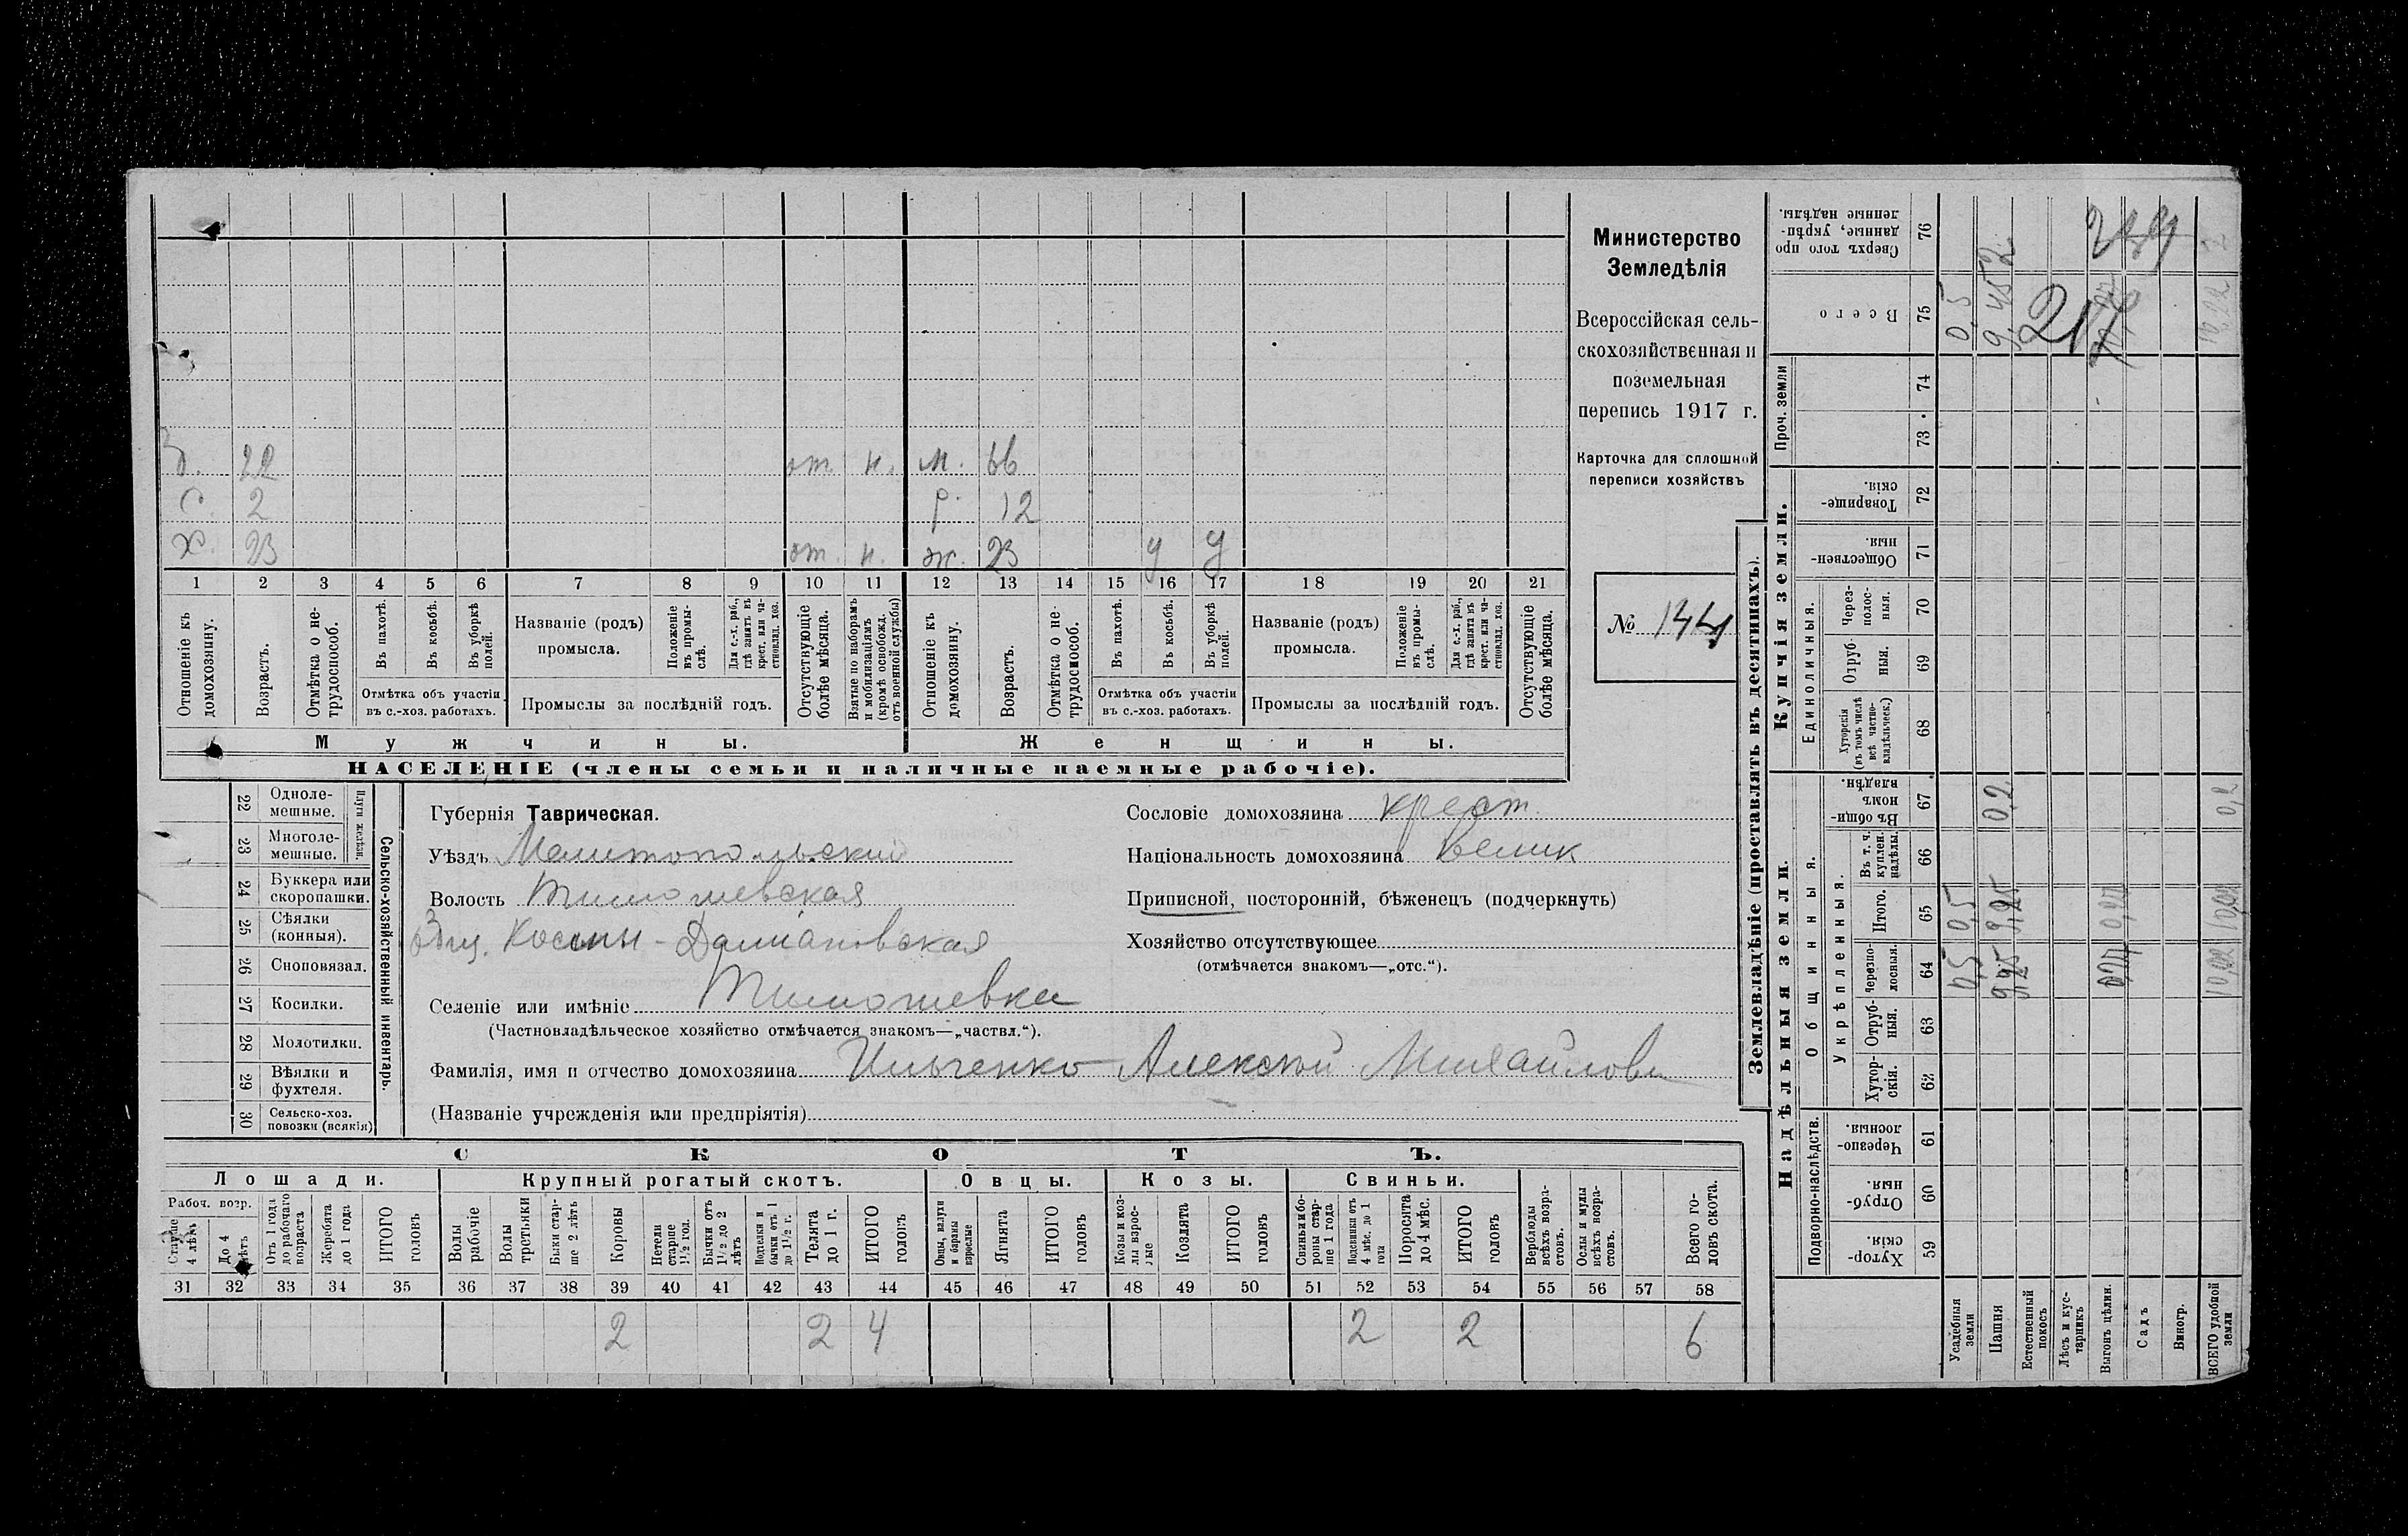 Министерство
Земледѣлія
Всероссійская сель-
скохозяйственная и
поземельная
перепись 1917 г.
Карточка для сплошной
переписи хозяйствъ
№ 144
б. 22 от. н. м. 66
с. 2 р. 12
х. 23 от. н. ж. 23 у у
1 2 3 4 5 6 7 8 9 10 11 12 13 14 15 16 17 18 19 20 21
Отношеніе къ домохозяину.
Возрастъ.
Отмѣтка о не-трудоспособ.
Въ пахотѣ.
Въ косьбѣ.
Въ уборкѣ полей.
Отмѣтка объ участіи
въ с.-хоз. работахъ.
Названіе (родъ)
промысла.
Положеніе въ промы-слѣ.
Для с.-х. раб., гдѣ занятъ въ крест. или ча-стновлад. хоз.
Промыслы за послѣдній годъ.
Отсутствующіе болѣе мѣсяца.
Взятые по наборамъ и мобилизаціямъ (кромѣ освобожд. отъ военной службы)
Отношеніе къ домохозяину.
Возрастъ.
Отмѣтка о не-трудоспособ.
Въ пахотѣ.
Въ косьбѣ.
Въ уборкѣ полей.
Отмѣтка объ участіи
въ с.-хоз. работахъ.
Названіе (родъ)
промысла.
Положеніе въ промы-слѣ.
Для с.-х. раб., гдѣ занята въ крест. или ча-стновлад. хоз.
Промыслы за послѣдній годъ.
Отсутствующіе болѣе мѣсяца.
Мужчины. Женщины.
НАСЕЛЕНІЕ (члены семьи и наличные наемные рабочіе).
Сельско-хозяйственный инвентарь.
Плуги желѣзн.
22 Одноле-мешные.
23 Многоле-мешные.
24 Буккера или скоропашки.
25 Сѣялки (конныя).
26 Сноповязал.
27 Косилки.
28 Молотилки.
29 Вѣялки и фухтеля.
30 Сельско-хоз. повозки (всякія)
Губернія Таврическая.
Уѣздъ Мелитопольский
Волость Тимошевская
Общ. Косьмы-Даміановская
Селеніе или имѣніе Тимошевка
(Частновладѣльческое хозяйство отмѣчается знакомъ—„частвл.“).
Фамилія, имя и отчество домохозяина Ильченко Алексѣй Михайлови
(Названіе учрежденія или предпріятія)
Сословіе домохозяина крест.
Національность домохозяина велик
Приписной, посторонній, бѣженецъ (подчеркнуть)
Хозяйство отсутствующее
(отмѣчается знакомъ—„отс.“).
СКОТЪ.
Лошади. Крупный рогатый скотъ. Овцы. Козы. Свиньи.
Рабоч. возр.
Старше 4 лѣтъ
До 4 лѣтъ
Отъ 1 года до рабочаго возраста
Жеребята до 1 года
ИТОГО головъ
Волы рабочіе
Волы третьяки
Быки стар-ше 2 лѣтъ
Коровы
Нетели старше 1½ год.
Бычки отъ 1½ до 2 лѣтъ
Подтелки и бычки отъ 1 до 1½ г.
Телята до 1 г.
ИТОГО головъ
Овцы, валухи и бараны взрослые
Ягнята
ИТОГО головъ
Козы и коз-лы взрос-лые
Козлята
ИТОГО головъ
Свиньи и бо-ровы стар-ше 1 года
Подсвинки отъ 4 мѣс. до 1 года
Поросята до 4 мѣс.
ИТОГО головъ
Верблюды всѣхъ возра-стовъ.
Ослы и мулы всѣхъ возра-стовъ.
Всего го-ловъ скота.
31 32 33 34 35 36 37 38 39 40 41 42 43 44 45 46 47 48 49 50 51 52 53 54 55 56 57 58
2 2 4 2 2 6
Землевладѣніе (проставлять въ десятинахъ).
Надѣльныя земли. Купчія земли. Проч. земли
Подворно-наслѣдств. Общинныя. Единоличныя.
Укрѣпленныя.
59 Хутор-скія.
60 Отруб-ныя.
61 Черезпо-лосныя.
62 Хутор-скія.
63 Отруб-ныя.
64 Черезпо-лосныя.
65 Итого.
66 Въ т. ч. куплен. надѣлы.
67 Въ общи-номъ владѣн.
68 Хуторскія (въ томъ числѣ всѣ частно-владѣльческ.)
69 Отруб-ныя.
70 Через-полос-ныя.
71 Обществен-ныя.
72 Товарище-скія.
73
74
75 Всего
76 Сверхъ того про-данные, укрѣп-ленные надѣлы.
Усадебныя земли 0,5 0,5 0,5
Пашня 9,25 9,25 0,2 9,452
Естественный покосъ
Лѣсъ и кус-тарникъ
Выгонъ цѣлин. 0,27 0,27
Садъ
Виногр.
ВСЕГО удобной земли 10,02 10,02 0,2 10,22
217